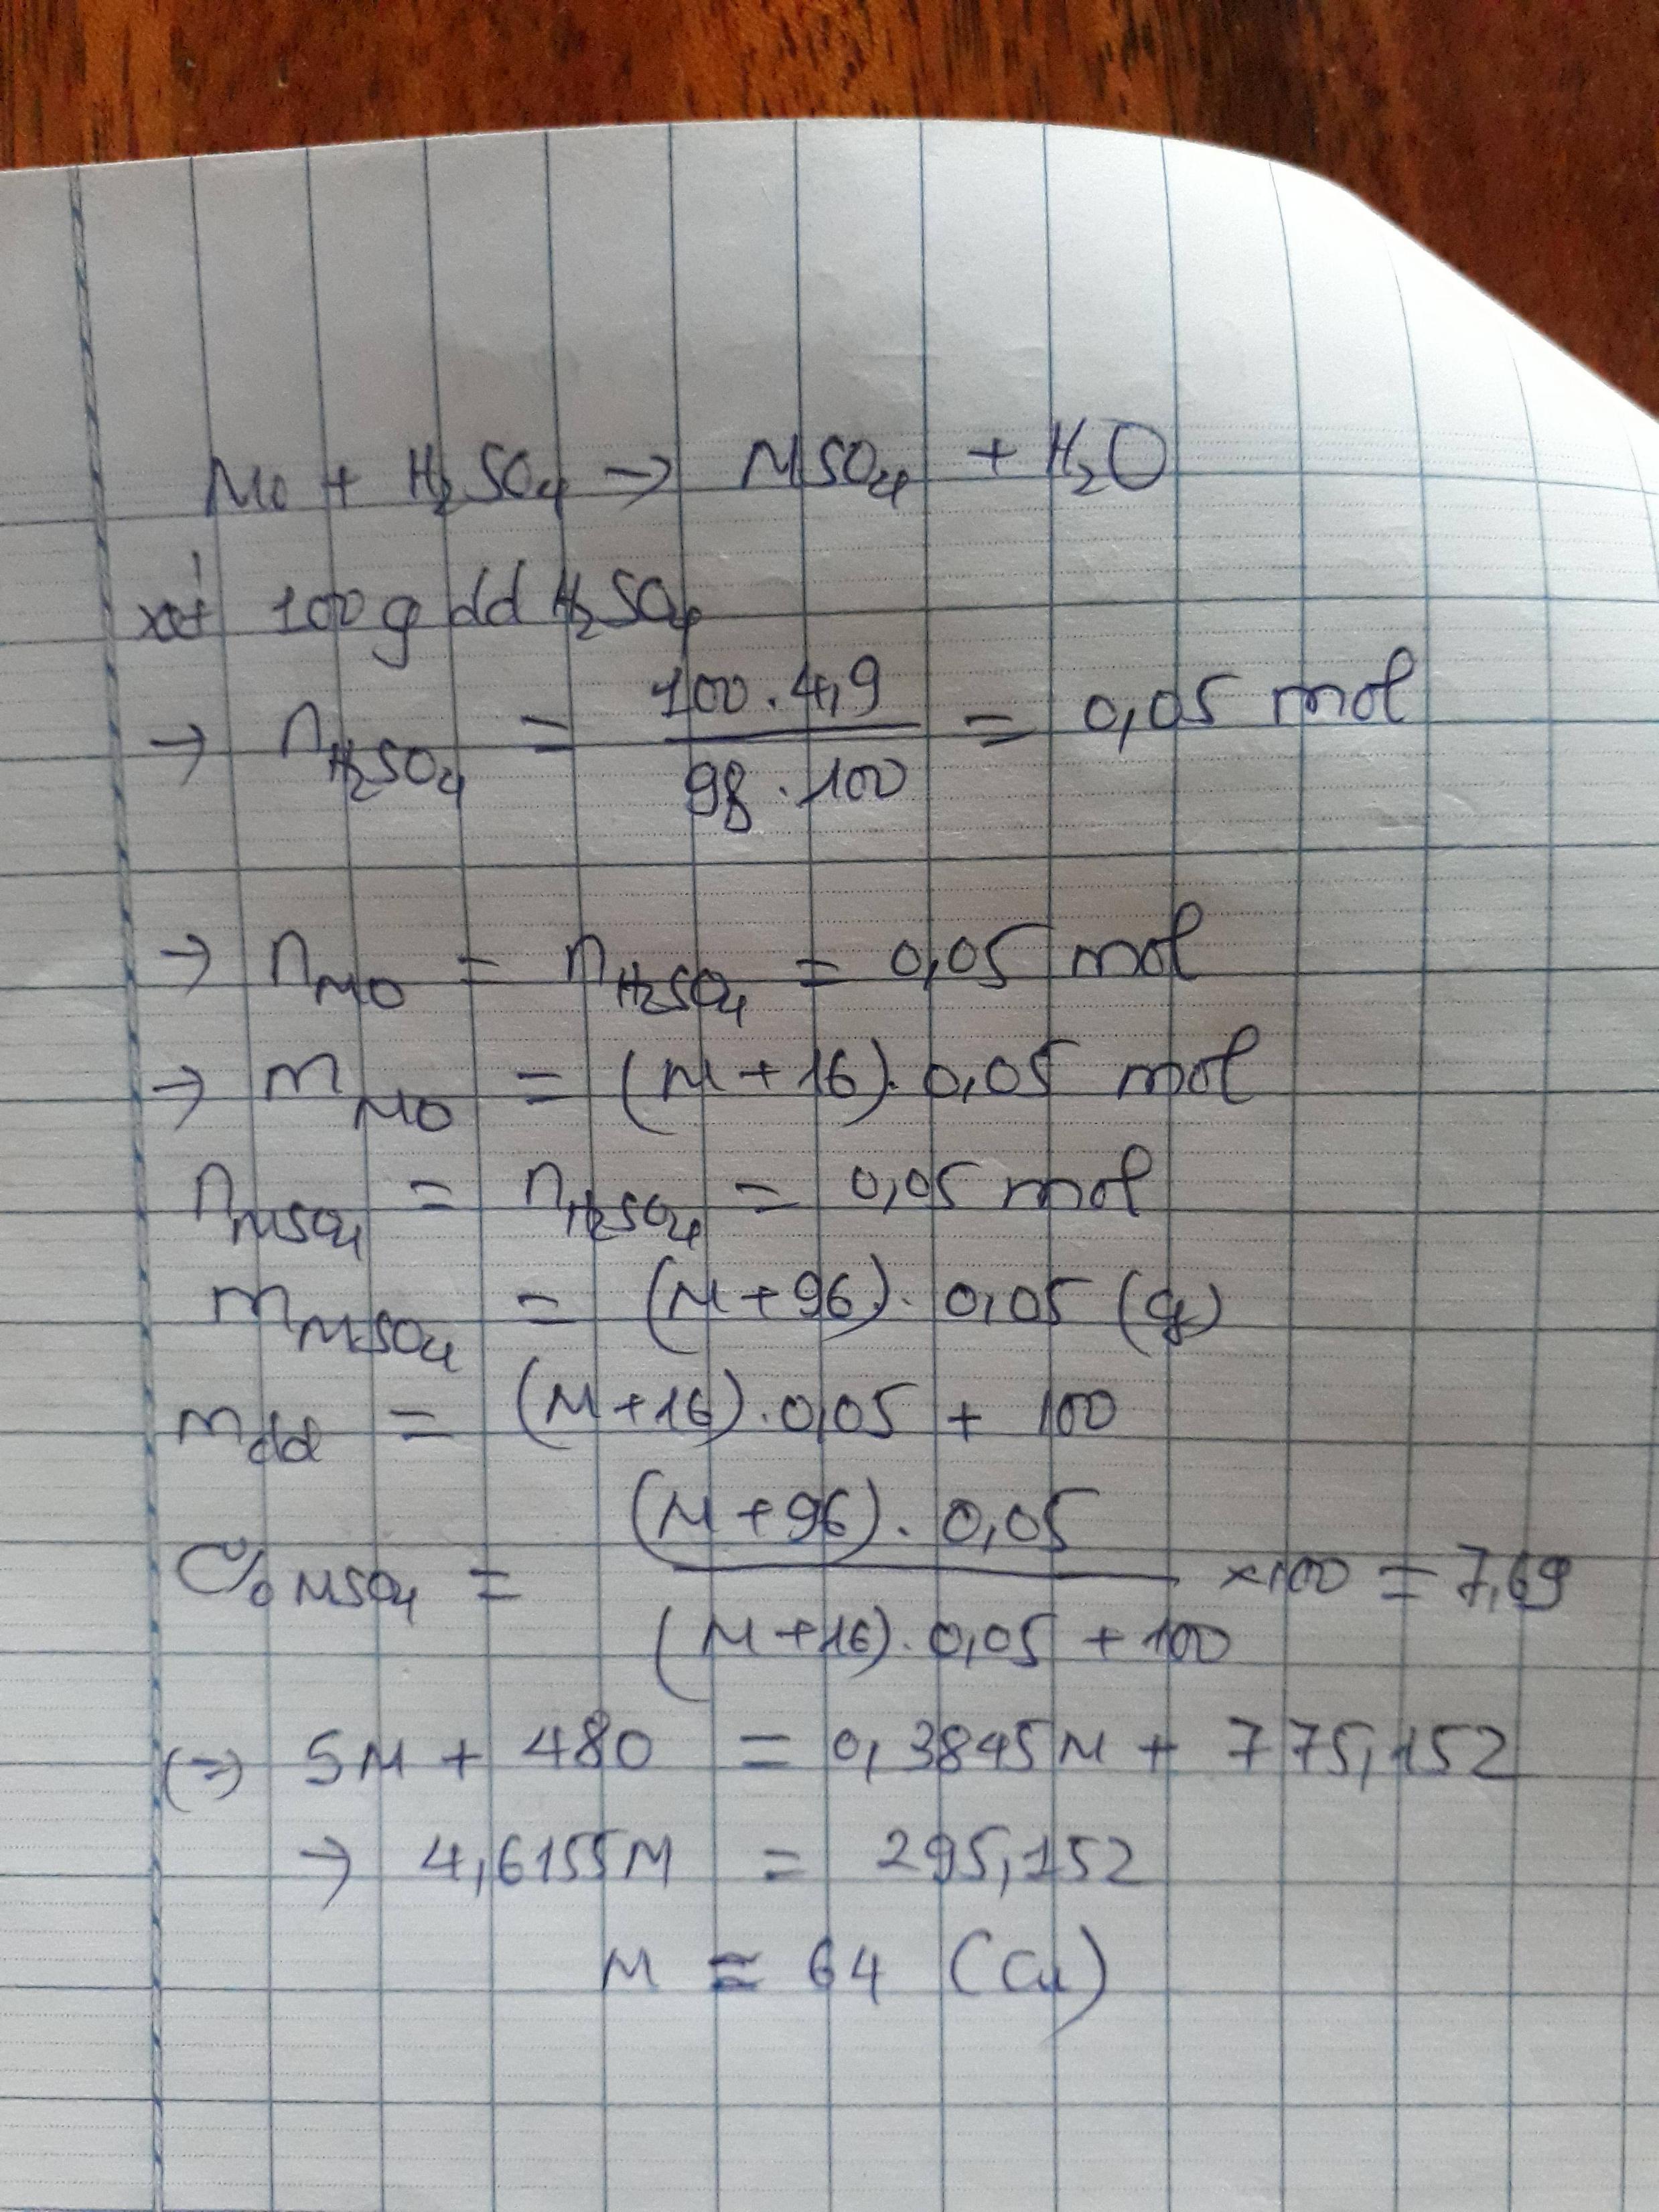 MO + H₂SO₄ → MSO₄ + H₂O
xét 100g dd H₂SO₄
→ n H₂SO₄ = 100 . 4,9 / 98 . 100 = 0,05 mol
→ n MO = n H₂SO₄ = 0,05 mol
→ m MO = (M + 16) . 0,05 mol
n MSO₄ = n H₂SO₄ = 0,05 mol
m MSO₄ = (M + 96) . 0,05 (g)
m dd = (M + 16) . 0,05 + 100
C% MSO₄ = (M + 96) . 0,05 / (M + 16) . 0,05 + 100 × 100 = 7,69
(=) 5M + 480 = 0,3845M + 775,152
→ 4,6155M = 295,152
M ≈ 64 (Cu)